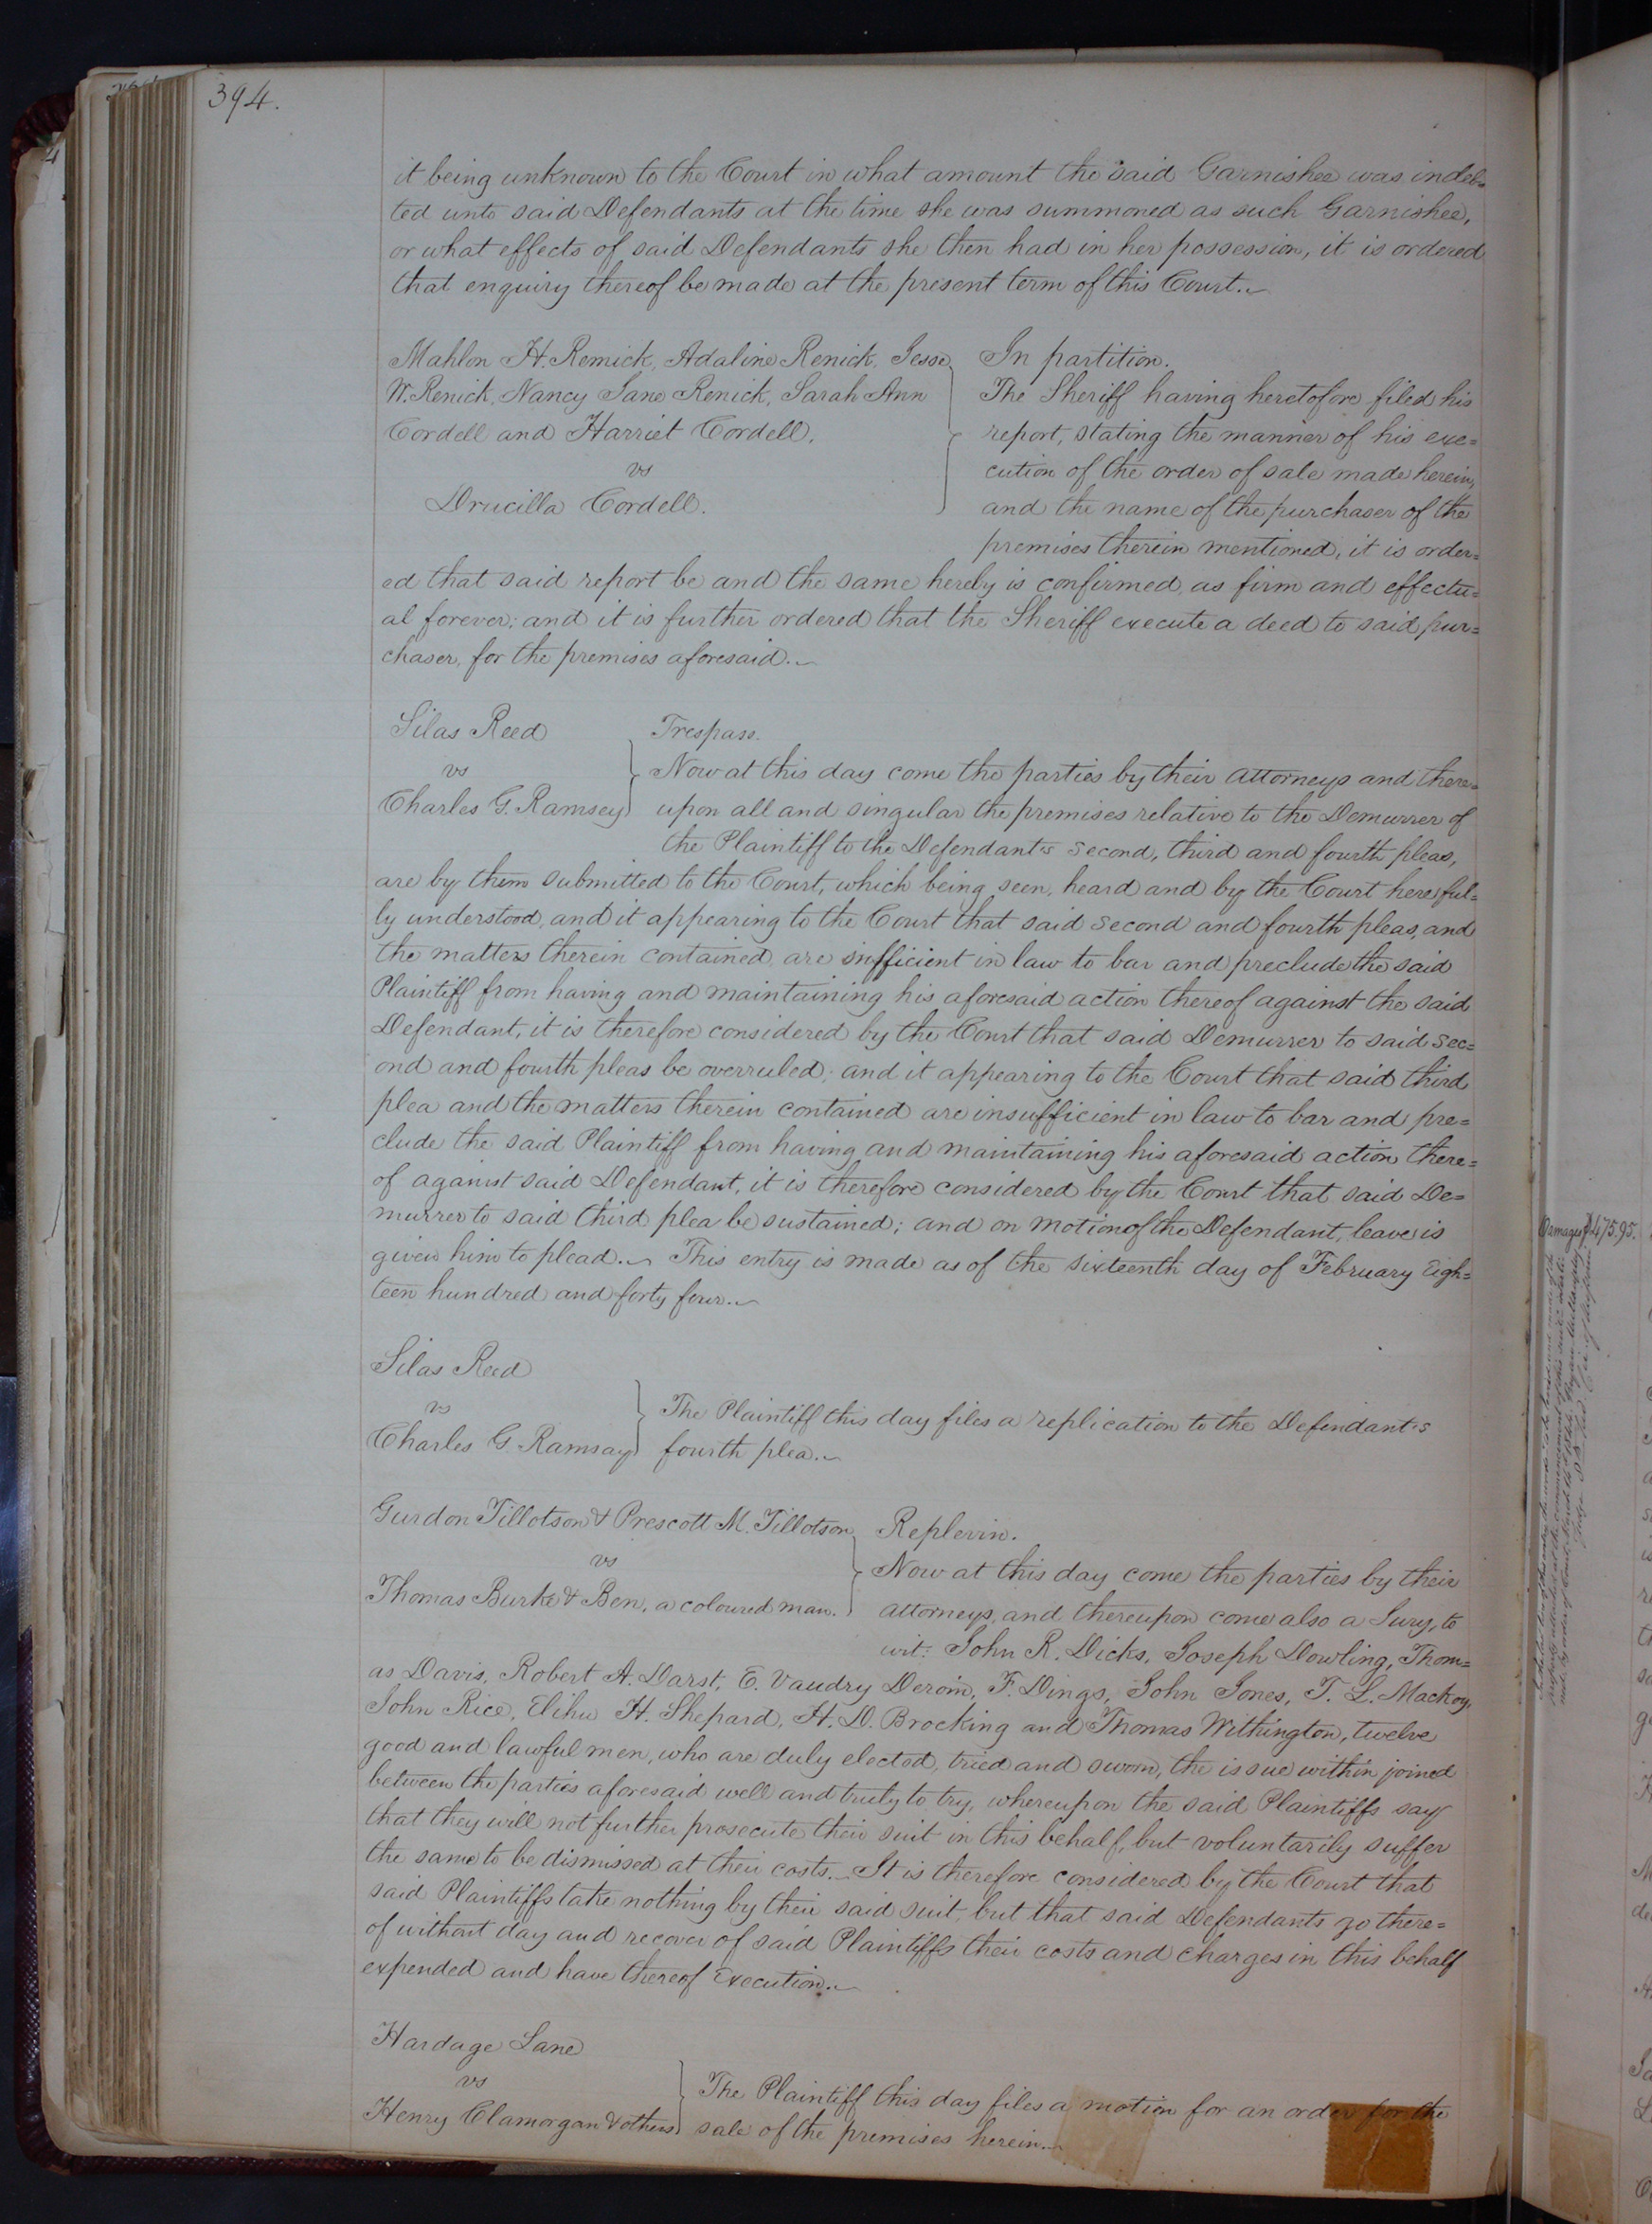 394.
it being unknown to the Court in what amount the said Garnishee was indeb=
ted unto said Defendants at the time she was summoned as such Garnishee,
or what effects of said Defendants she then had in her possession, it is ordered
that enquiry thereof be made at the present term of this Court.
Mahlon H. Remick, Adaline Renick, Jesse
W. Renick, Nancy Jane Renick, Sarah Ann
Cordell and Harriet Cordell,
vs
Drucilla Cordell.
In partition.
The Sheriff having heretofore filed his
report, stating the manner of his exe=
cution of the order of sale made herein,
and the name of the purchaser of the
premises therein mentioned, it is order=
ed that said report be and the same hereby is confirmed, as firm and effectu=
al forever; and it is further ordered that the Sheriff execute a deed to said pur=
chaser, for the premises aforesaid.
Silas Reed
vs
Charles G. Ramsey
Trespass.
Now at this day come the parties by their attorneys and there=
upon all and singular the premises relative to the Demurrer of
the Plaintiff to the Defendant's second, third and fourth pleas,
are by them submitted to the Court, which being seen, heard and by the Court here ful=
ly understood, and it appearing to the Court that said second and fourth pleas, and
the matters therein contained are sufficient in law to bar and preclude the said
Plaintiff from having and maintaining his aforesaid action thereof against the said
Defendant, it is therefore considered by the Court that said Demurrer to said sec=
ond and fourth pleas be overruled; and it appearing to the Court that said third
plea and the matters therein contained are insufficient in law to bar and pre=
clude the said Plaintiff from having and maintaining his aforesaid action there=
of against said Defendant, it is therefore considered by the Court that said De=
murrer to said third plea be sustained; and on motion of the Defendant, leave is
given him to plead. This entry is made as of the sixteenth day of February Eigh=
teen hundred and forty four.
Silas Reed
vs
Charles G Ramsay
The Plaintiff this day files a replication to the Defendant's
fourth plea.
Gurdon Tillotson & Prescott M. Tillotson
vs
Thomas Burke & Ben, a coloured man.
Replevin.
Now at this day come the parties by their
attorneys, and thereupon come also a Jury, to
wit: John R. Dicks, Joseph Dowling, Thom=
as Davis, Robert A. Darst, E. Vaudry Deroin, F. Dings, John Jones, T. L. Mackoy,
John Rice, Elihu H. Shepard, H. D. Brocking and Thomas Withington, twelve
good and lawful men, who are duly elected, tried and sworn, the issue within joined
between the parties aforesaid well and truly to try, whereupon the said Plaintiffs say
that they will not further prosecute their suit in this behalf, but voluntarily suffer
the same to be dismissed at their costs. It is therefore considered by the Court that
said Plaintiffs take nothing by their said suit, but that said Defendants go there=
of without day and recover of said Plaintiffs their costs and charges in this behalf
expended and have thereof Execution.
Hardage Lane
vs
Henry Clamorgan & others
The Plaintiff this day files a motion for an order for the
sale of the premises herein.
Damages $475.95.